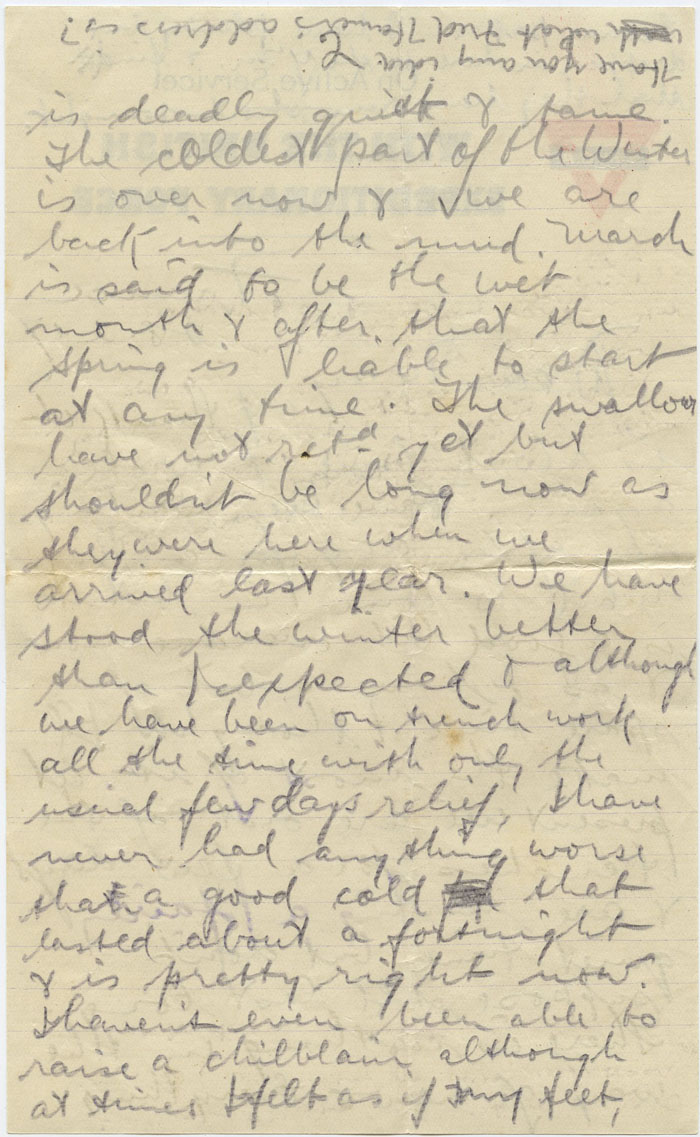 Have you any idea
what Fred Homer's address is?
is deadly quiet & tame.
The coldest part of the Winter
is over now & we are
back into the mud. March
is said to be the wet
month & after that the
spring is liable to start
at any time. The swallows
have not retd yet but
shouldn't be long now as
they were here when we
arrived last year. We have
stood the winter better
than I expected & although
we have been on trench work
all the time with only the
usual few days relief, I have
never had anything worse
than a good cold that
lasted about a fortnight
& is pretty right now.
I haven't even been able to
raise a chilblain although
at times I felt as if my feet,